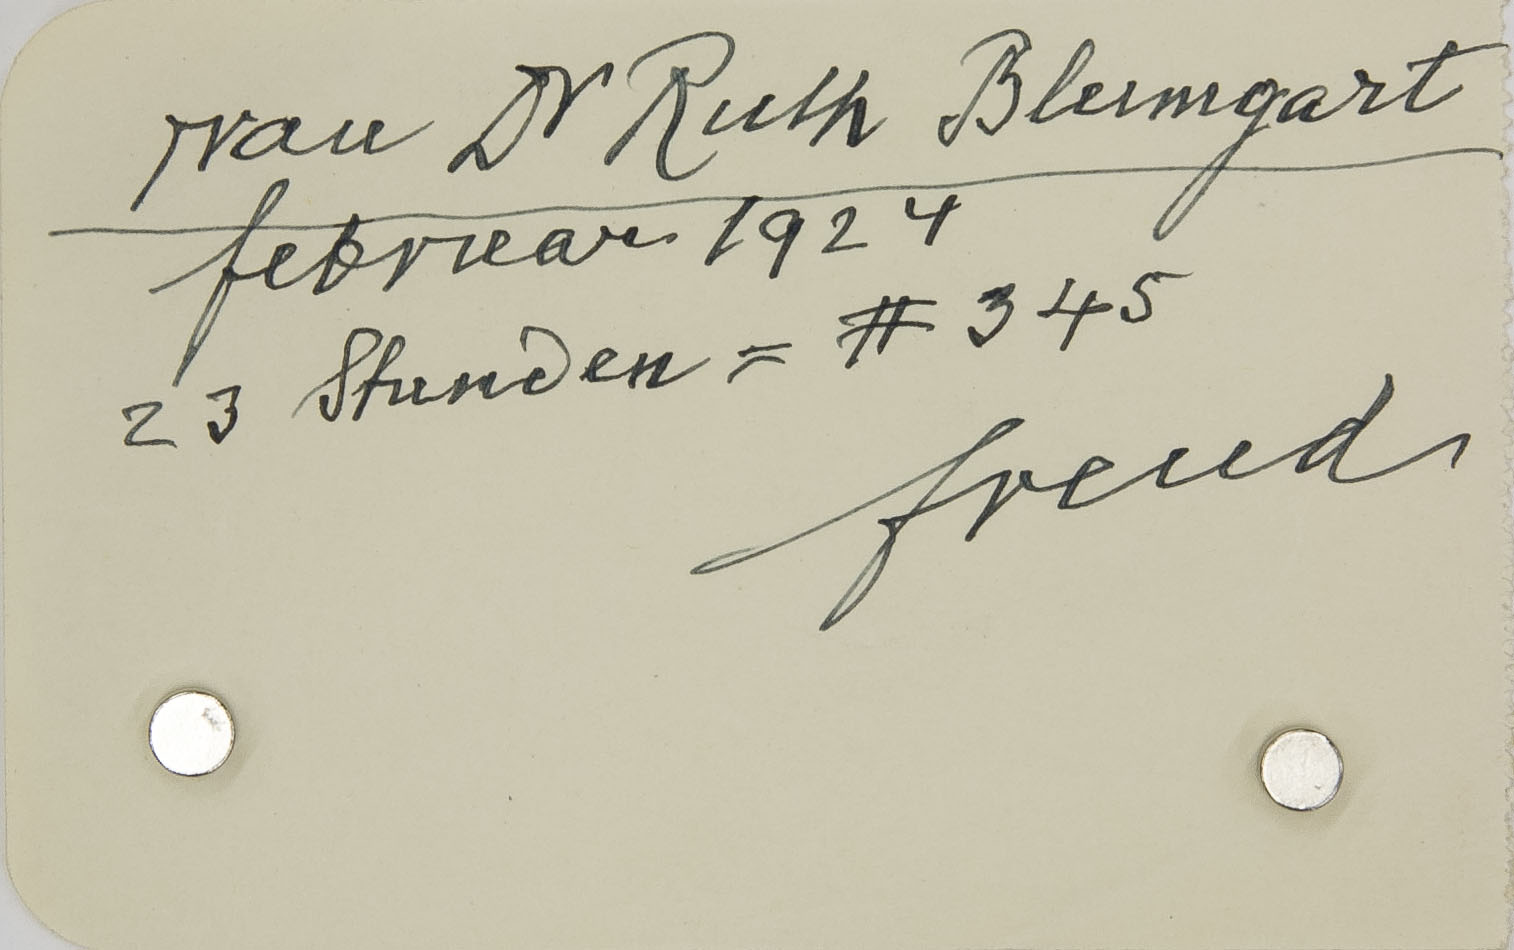 Frau Dr Ruth Blumgart
februar 1924
23 Stunden = # 345
freud